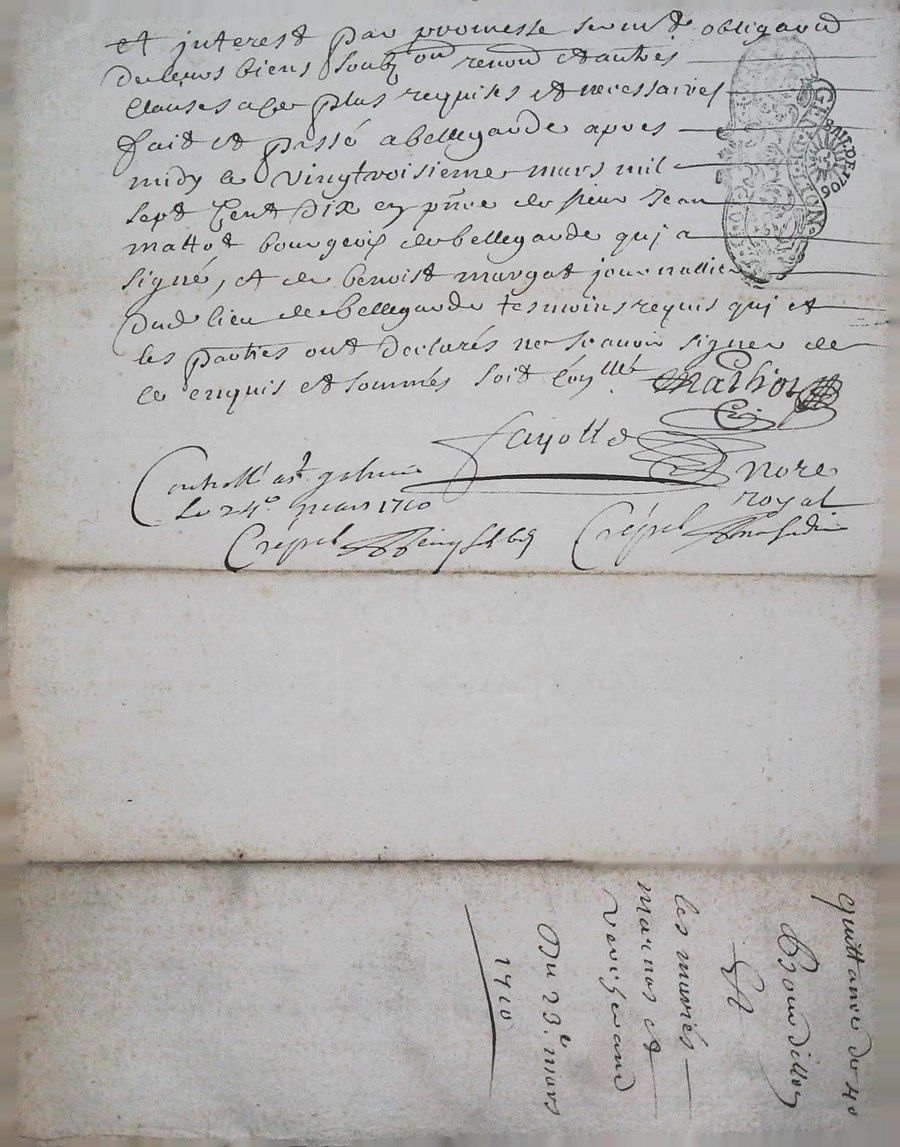 et interest par promesse serm.t obligaõn
de leurs biens soubz õn renoñ et autres
Clauses a ce plus requises et necessaires
fait et passé a bellegarde apres
midy le vingtroisieme mars mil
sept Cent Dix en pñce de sieur Jean
mathot bourgeois de bellegarde qui a
signé, et de benoist margat journallier
Dud. lieu de bellegarde tesmoins requis qui et
les parties ont declarés ne scavoir signer de
ce enquis et sommés soit
fayolle
nore
royal
Controllé
Le 24.e mars 1710
Crépel
Crépel
GEN DE LYON
BAIL DE 1706
quittance de 40
Bourdillon
Et
les mariés
marnas et
Du 23.e mars
1710